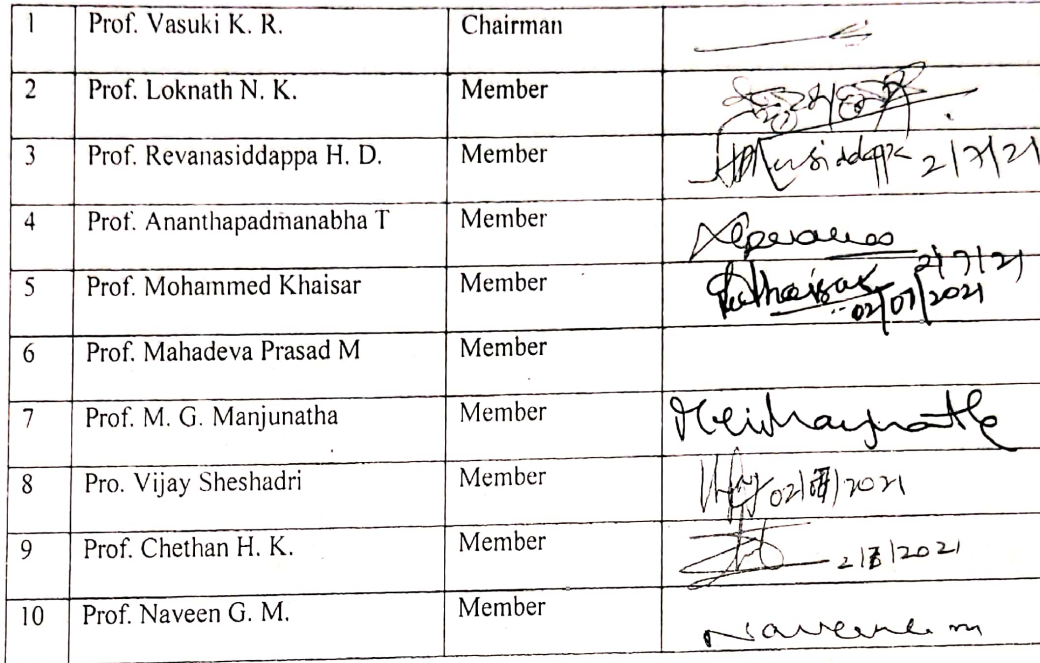 1 Prof. Vasuki K. R. Chairman
2 Prof. Loknath N. K. Member
3 Prof. Revanasiddappa H. D. Member 2/7/21
4 Prof. Ananthapadmanabha T Member
5 Prof. Mohammed Khaisar Member 2/7/21
02/07/2021
6 Prof. Mahadeva Prasad M Member
7 Prof. M. G. Manjunatha Member
8 Pro. Vijay Sheshadri Member 02/07/2021
9 Prof. Chethan H. K. Member 2/7/2021
10 Prof. Naveen G. M. Member